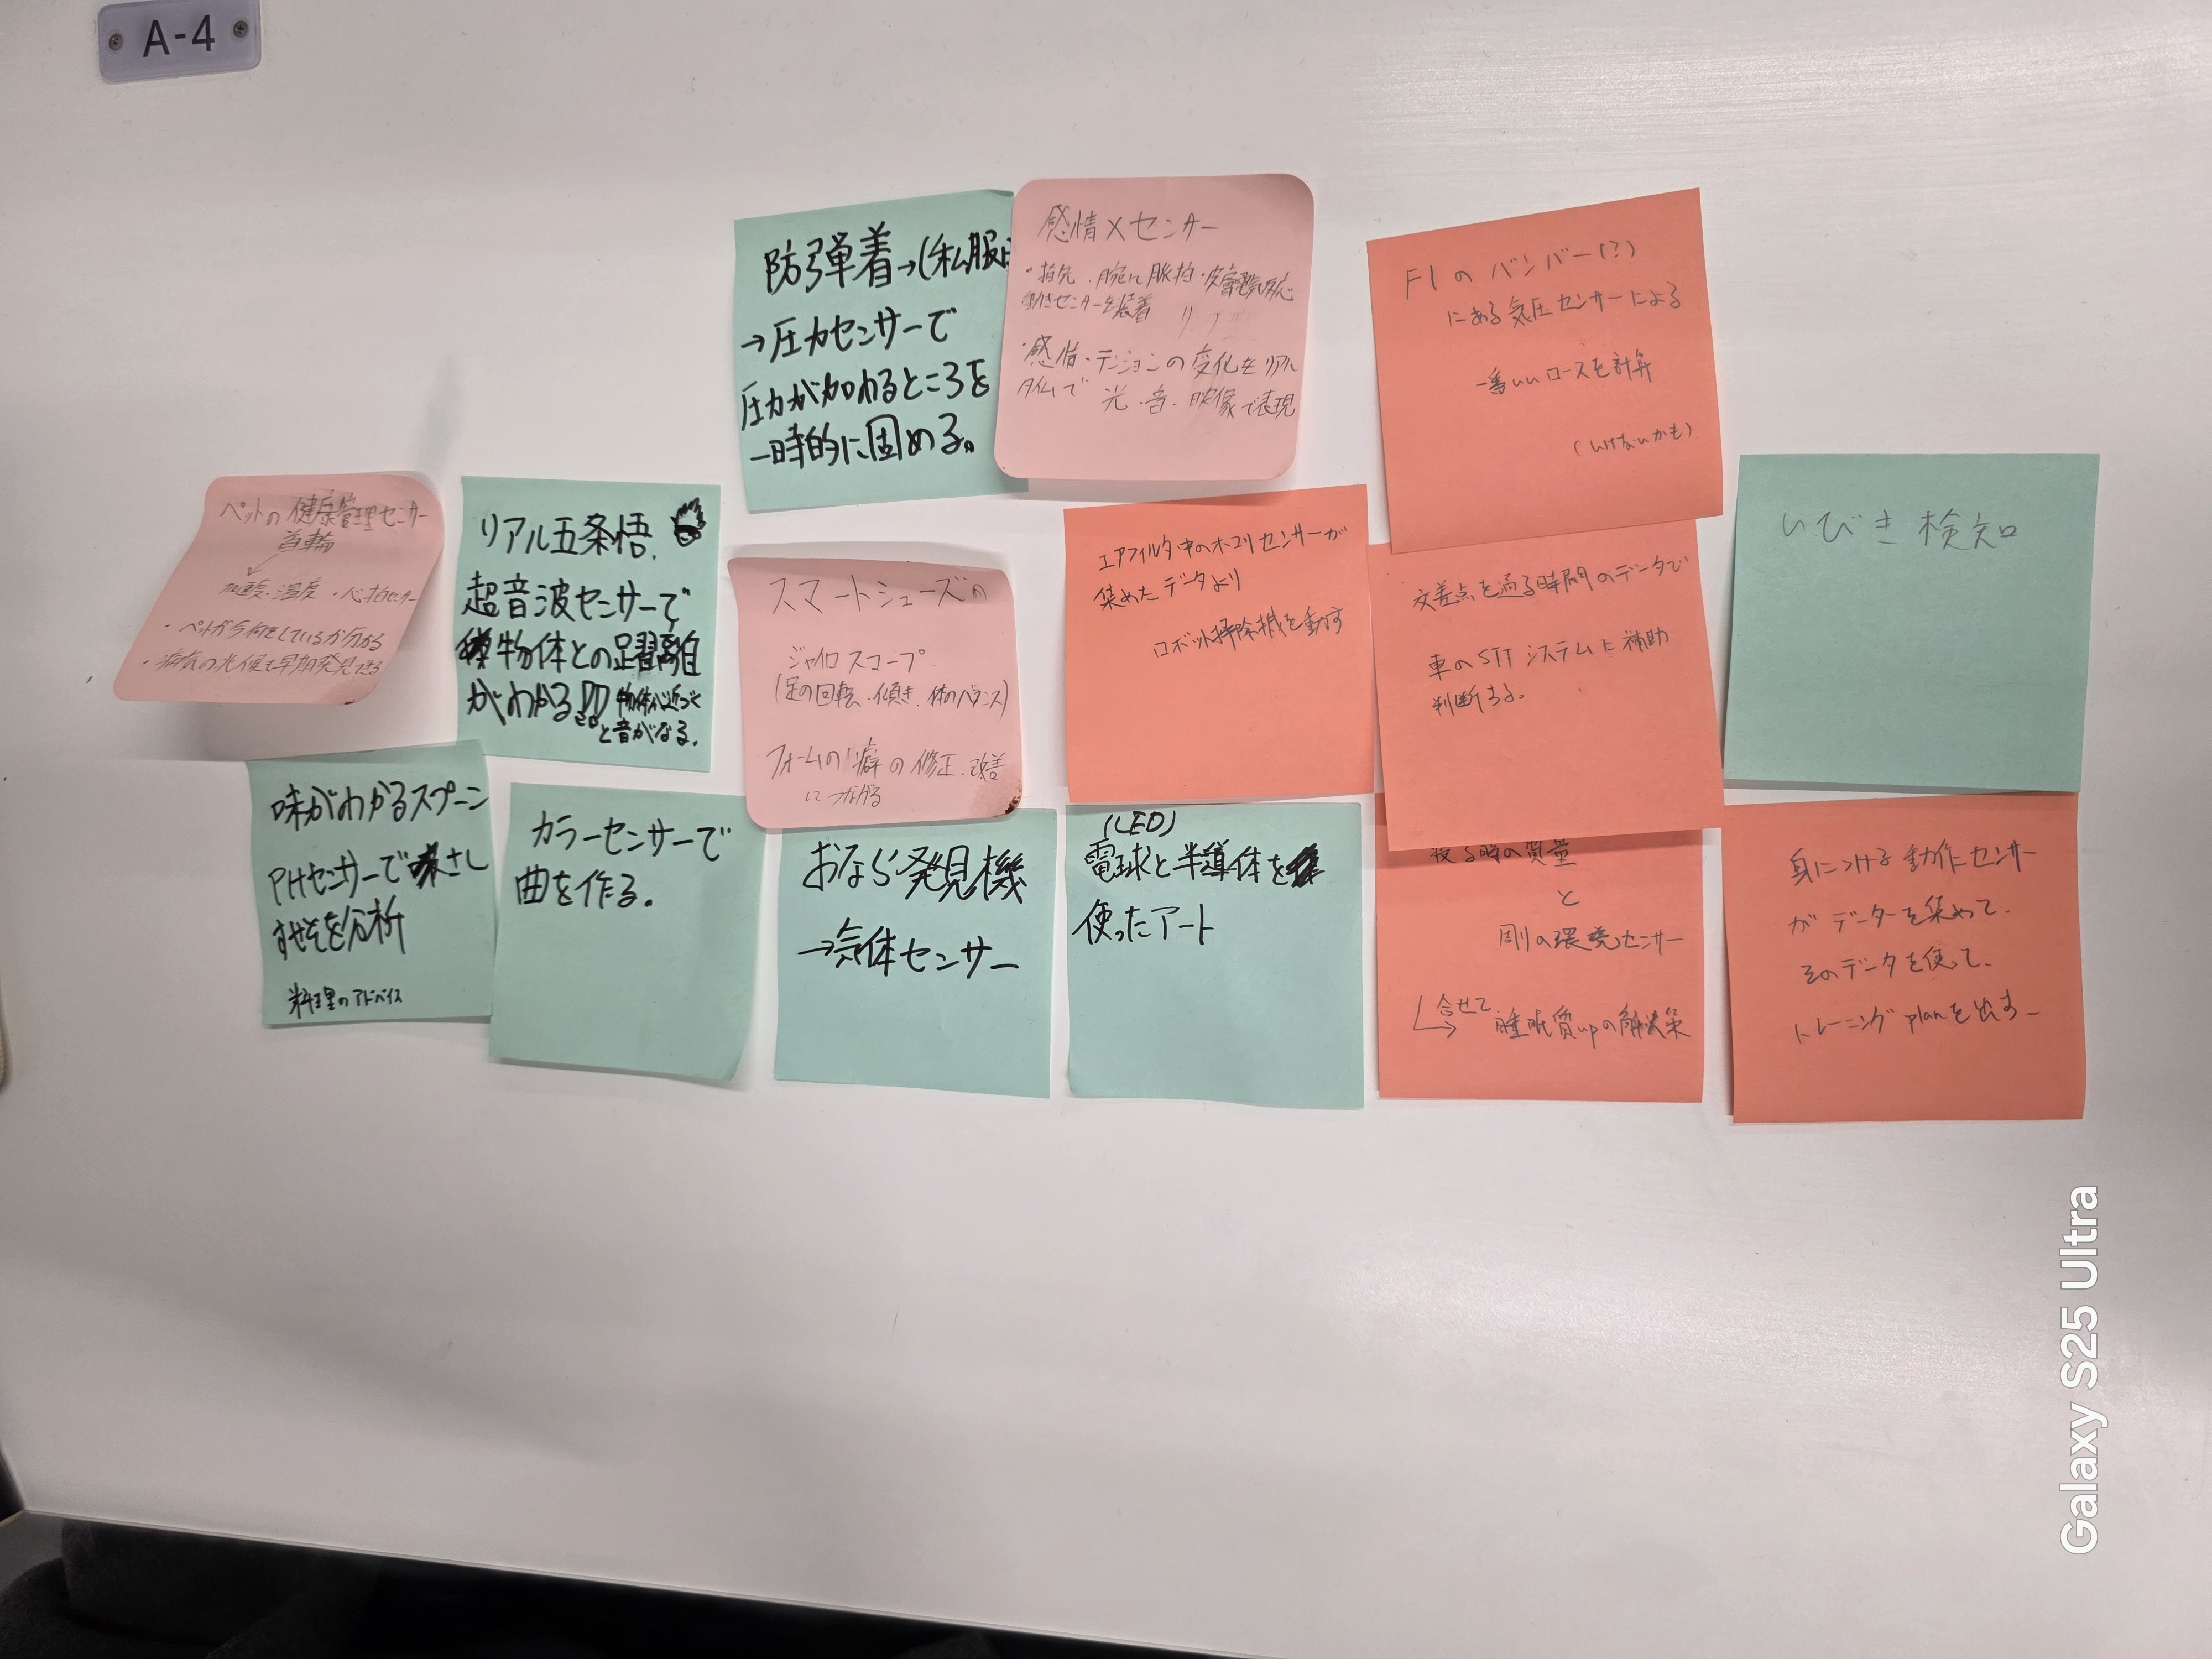 A-4
防弾着→(私服に
→圧力センサーで
圧力が加わるところを
一時的に固める。
感情×センサー
・指先、腕に脈拍・皮膚電気反応
動きセンサーを装着
・感情・テンションの変化をリアル
タイムで 光・音・映像で表現
F1のバンパー(?)
にある気圧センサーによる
一番いいコースを計算
(いけないかも)
ペットの健康管理センサー
首輪
加速度・温度・心拍センサー
・ペットが今何をしているか分かる
・病気の兆候を早期発見できる
リアル五条悟.
超音波センサーで
物体との距離
がわかる!! 物体が近づく
と音がなる.
スマートシューズの
ジャイロスコープ
(足の回転・傾き・体のバランス)
フォームの癖の修正・改善
につながる
エアフィルタ中のホコリセンサーが
集めたデータより
ロボット掃除機を動す
交差点を過る時間のデータで
車のSTTシステムに補助
判断する。
いびき検知
味がわかるスプーン
PHセンサーで味さし
すせそを分析
料理のアドバイス
カラーセンサーで
曲を作る。
おなら発見機
→気体センサー
(LED)
電球と半導体を
使ったアート
寝る時の質量
と
周りの環境センサー
合せて
睡眠質upの解決策
身につける動作センサー
がデーターを集めて.
そのデータを使って、
トレーニングplanを出す
Galaxy S25 Ultra